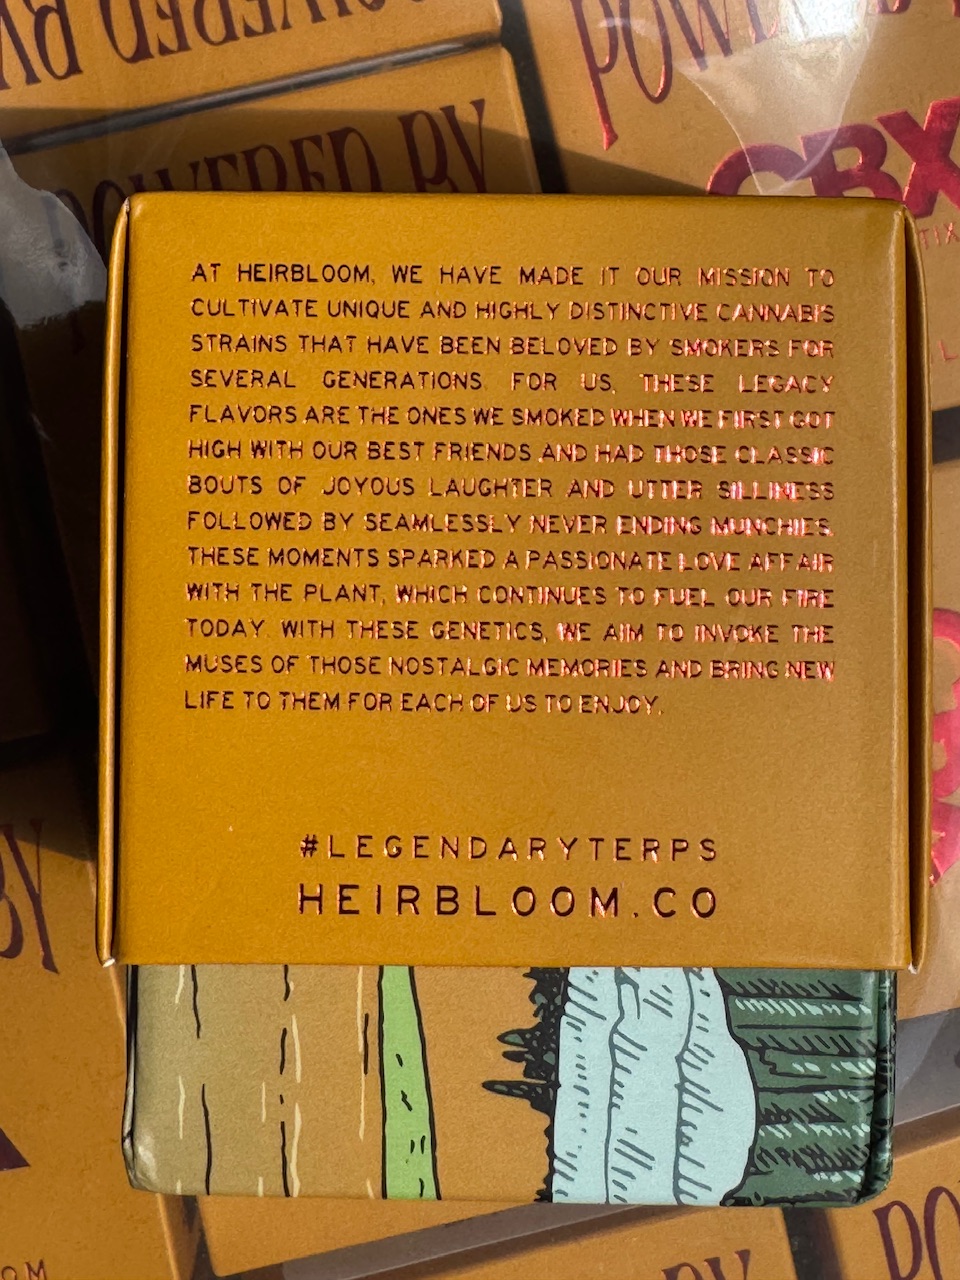 POWERED BY
POWERED BY
CBX
AT HEIRBLOOM, WE HAVE MADE IT OUR MISSION TO
CULTIVATE UNIQUE AND HIGHLY DISTINCTIVE CANNABIS
STRAINS THAT HAVE BEEN BELOVED BY SMOKERS FOR
SEVERAL GENERATIONS. FOR US, THESE LEGACY
FLAVORS ARE THE ONES WE SMOKED WHEN WE FIRST GOT
HIGH WITH OUR BEST FRIENDS AND HAD THOSE CLASSIC
BOUTS OF JOYOUS LAUGHTER AND UTTER SILLINESS
FOLLOWED BY SEAMLESSLY NEVER ENDING MUNCHIES.
THESE MOMENTS SPARKED A PASSIONATE LOVE AFFAIR
WITH THE PLANT, WHICH CONTINUES TO FUEL OUR FIRE
TODAY. WITH THESE GENETICS, WE AIM TO INVOKE THE
MUSES OF THOSE NOSTALGIC MEMORIES AND BRING NEW
LIFE TO THEM FOR EACH OF US TO ENJOY.
#LEGENDARYTERPS
HEIRBLOOM.CO
BY